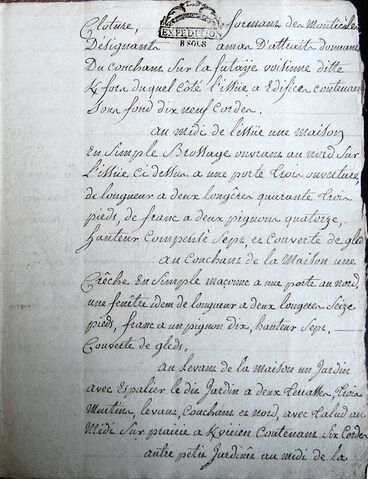 Cloture, formans des Monticules
EXPEDITION
8 SOLS
Designants amas D'attraits donnans
Du couchans sur la futaye voisinne ditte
Kfors duquel côté l'issüe a Edifices contenans
sous fond dix neuf Cordes.
au midi de l'issüe une maison
En Simple Brossage ouvrans au nord sur
L'issüe ci dessus a une porte trois ouvertures,
de longueur a deux longères quarante trois
pieds, de franc a deux pignons quatorze,
hauteur Compensé Sept, et Converte de gleds
au Conchans de la Maison une
Crêche En Simple maconne a une porte au nord,
une fenêtre idem de longueur a deux longeres Seize
pieds, franc a un pignon dix, hauteur Sept,
Couverte de gleds.
au levans de la maison un Jardin
avec Espalier le dit Jardin a deux
levans, couchans et nord, avec talud au
Midi Sur prairie a Contenans Six Cordes
autre petit Jardinés au midi de la